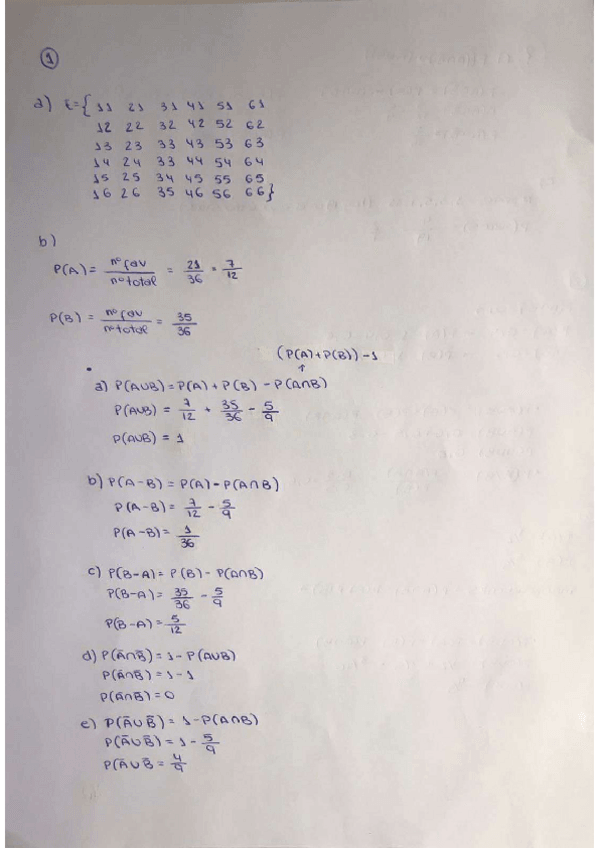 1
a) E={ 11 21 31 41 51 61
12 22 32 42 52 62
13 23 33 43 53 63
14 24 33 44 54 64
15 25 34 45 55 65
16 26 35 46 56 66}
b)
P(A) = nº fav / nº total = 21/36 = 7/12
P(B) = nº fav / nº total = 35/36
(P(A)+P(B))-1
↑
a) P(A∪B) = P(A) + P(B) - P(A∩B)
P(A∪B) = 7/12 + 35/36 - 5/9
P(A∪B) = 1
b) P(A-B) = P(A) - P(A∩B)
P(A-B) = 7/12 - 5/9
P(A-B) = 1/36
c) P(B-A) = P(B) - P(A∩B)
P(B-A) = 35/36 - 5/9
P(B-A) = 5/12
d) P(Ā∩B̄) = 1 - P(A∪B)
P(Ā∩B̄) = 1 - 1
P(Ā∩B̄) = 0
e) P(Ā∪B̄) = 1 - P(A∩B)
P(Ā∪B̄) = 1 - 5/9
P(Ā∪B̄ = 4/9